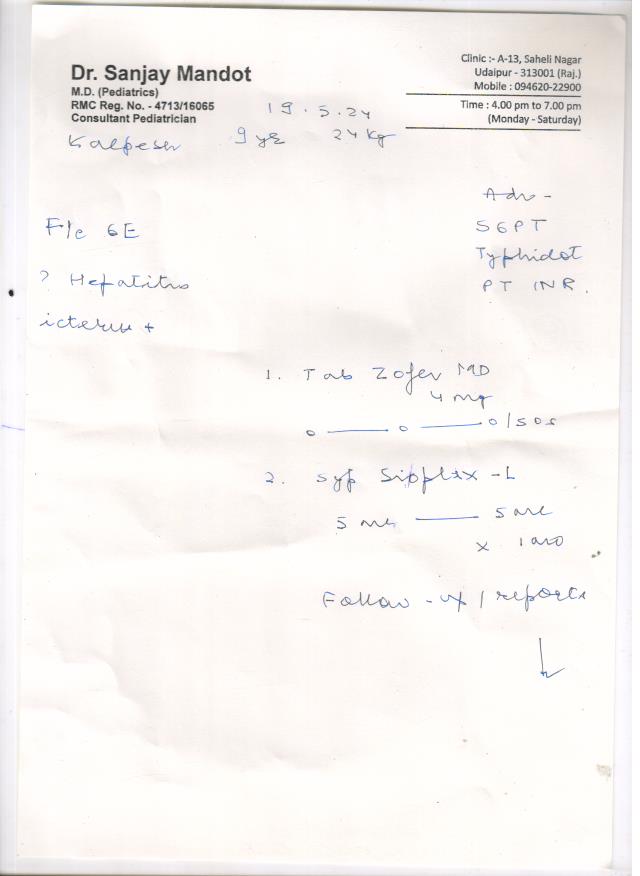 Dr. Sanjay Mandot
M.D. (Pediatrics)
RMC Reg. No. - 4713/16065
Consultant Pediatrician
Clinic :- A-13, Saheli Nagar
Udaipur - 313001 (Raj.)
Mobile : 094620-22900
Time : 4.00 pm to 7.00 pm
(Monday - Saturday)
19.5.24
Kalpesh 9 yr 24 kg
Adv -
SGPT
Typhidot
PT INR.
F/c GE
? Hepatitis
icterus +
1. Tab Zofer MD
4 mg
o — o — o/sos
2. Syp Sioplex -L
5 ml — 5 ml
x 1
Follow - up / reports